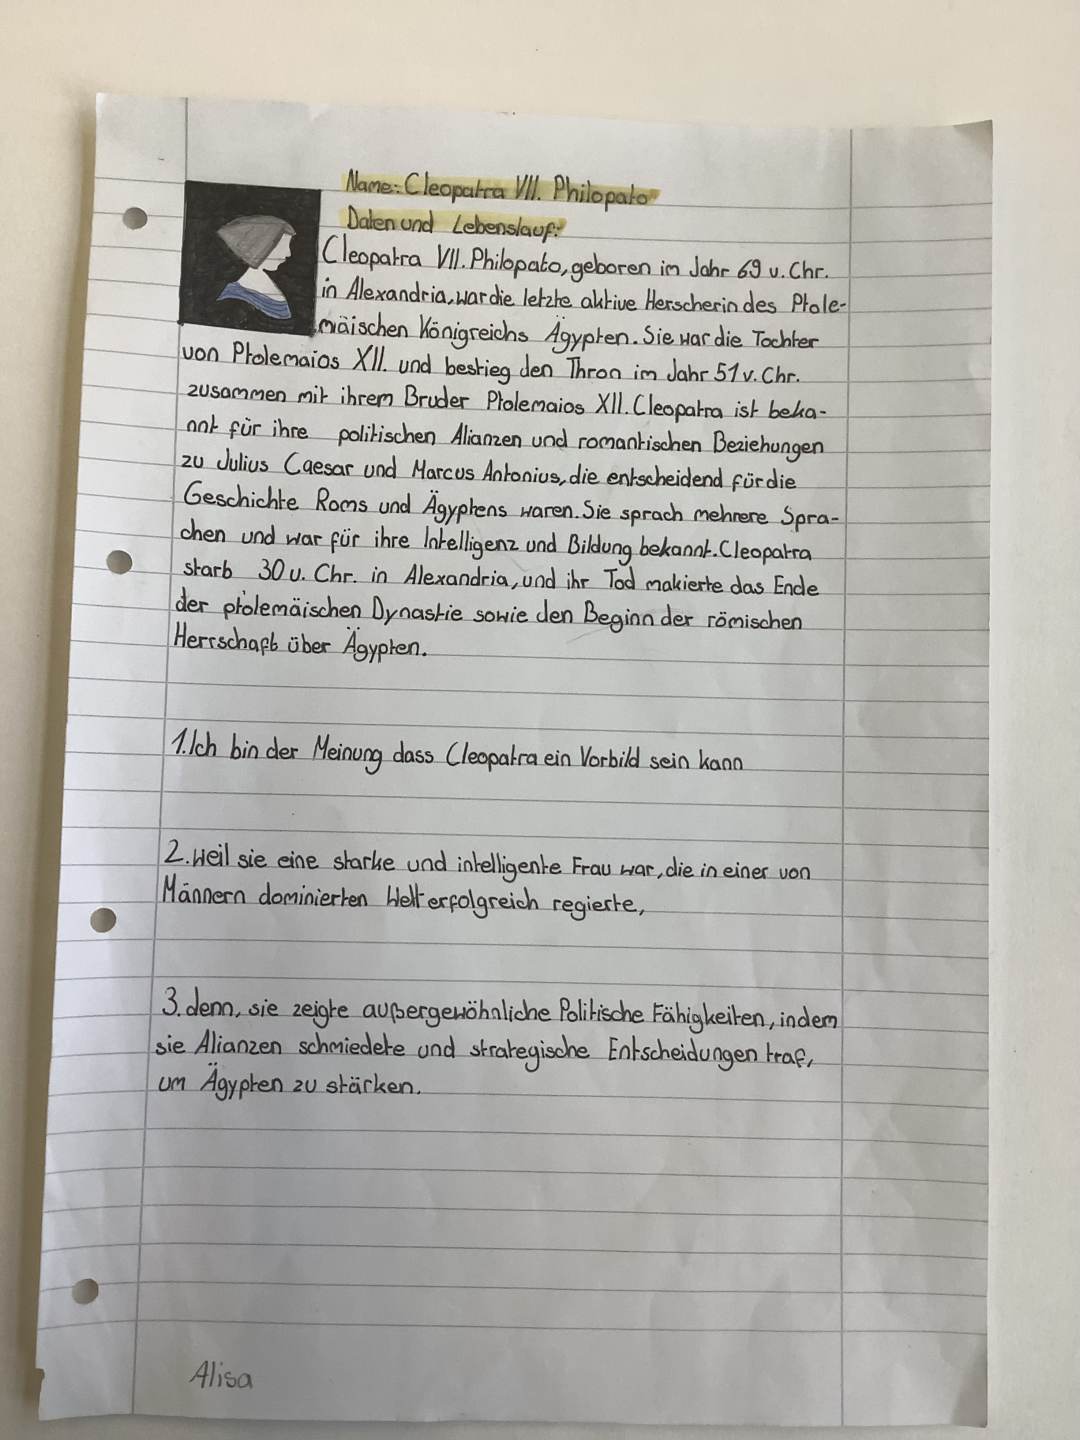 Name: Cleopatra VII. Philopato
Daten und Lebenslauf:
Cleopatra VII. Philopato, geboren im Jahr 69 v. Chr.
in Alexandria, war die letzte aktive Herscherin des Ptole-
mäischen Königreichs Ägypten. Sie war die Tochter
von Ptolemaios XII. und bestieg den Thron im Jahr 51 v. Chr.
zusammen mit ihrem Bruder Ptolemaios XII. Cleopatra ist beka-
nnt für ihre politischen Alianzen und romantischen Beziehungen
zu Julius Caesar und Marcus Antonius, die entscheidend für die
Geschichte Roms und Ägyptens waren. Sie sprach mehrere Spra-
chen und war für ihre Intelligenz und Bildung bekannt. Cleopatra
starb 30 v. Chr. in Alexandria, und ihr Tod makierte das Ende
der ptolemäischen Dynastie sowie den Beginn der römischen
Herrschaft über Ägypten.
1. Ich bin der Meinung dass Cleopatra ein Vorbild sein kann
2. weil sie eine starke und intelligente Frau war, die in einer von
Männern dominierten Welt erfolgreich regierte,
3. denn, sie zeigte außergewöhnliche Politische Fähigkeiten, indem
sie Alianzen schmiedete und strategische Entscheidungen traf,
um Ägypten zu stärken.
Alisa